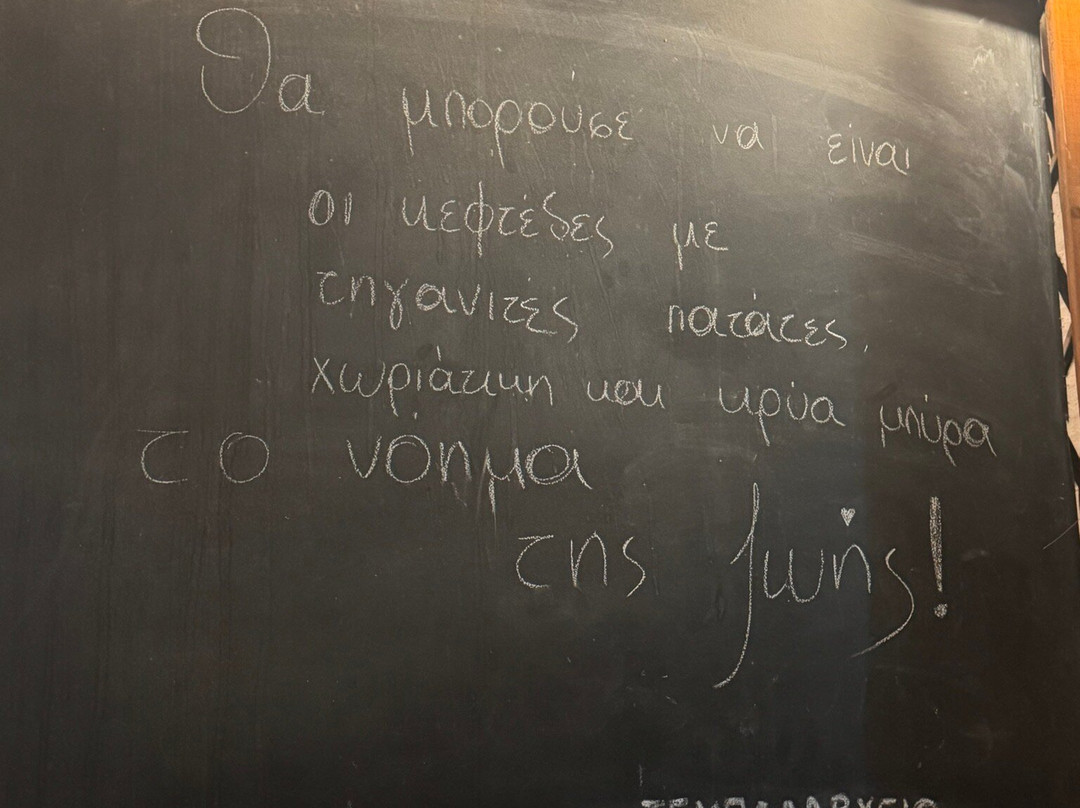 Θα μπορούσε να είναι
οι κεφτέδες με
τηγανιτές πατάτες,
χωριάτικη και κρύα μπύρα
το νόημα
της ζωής!